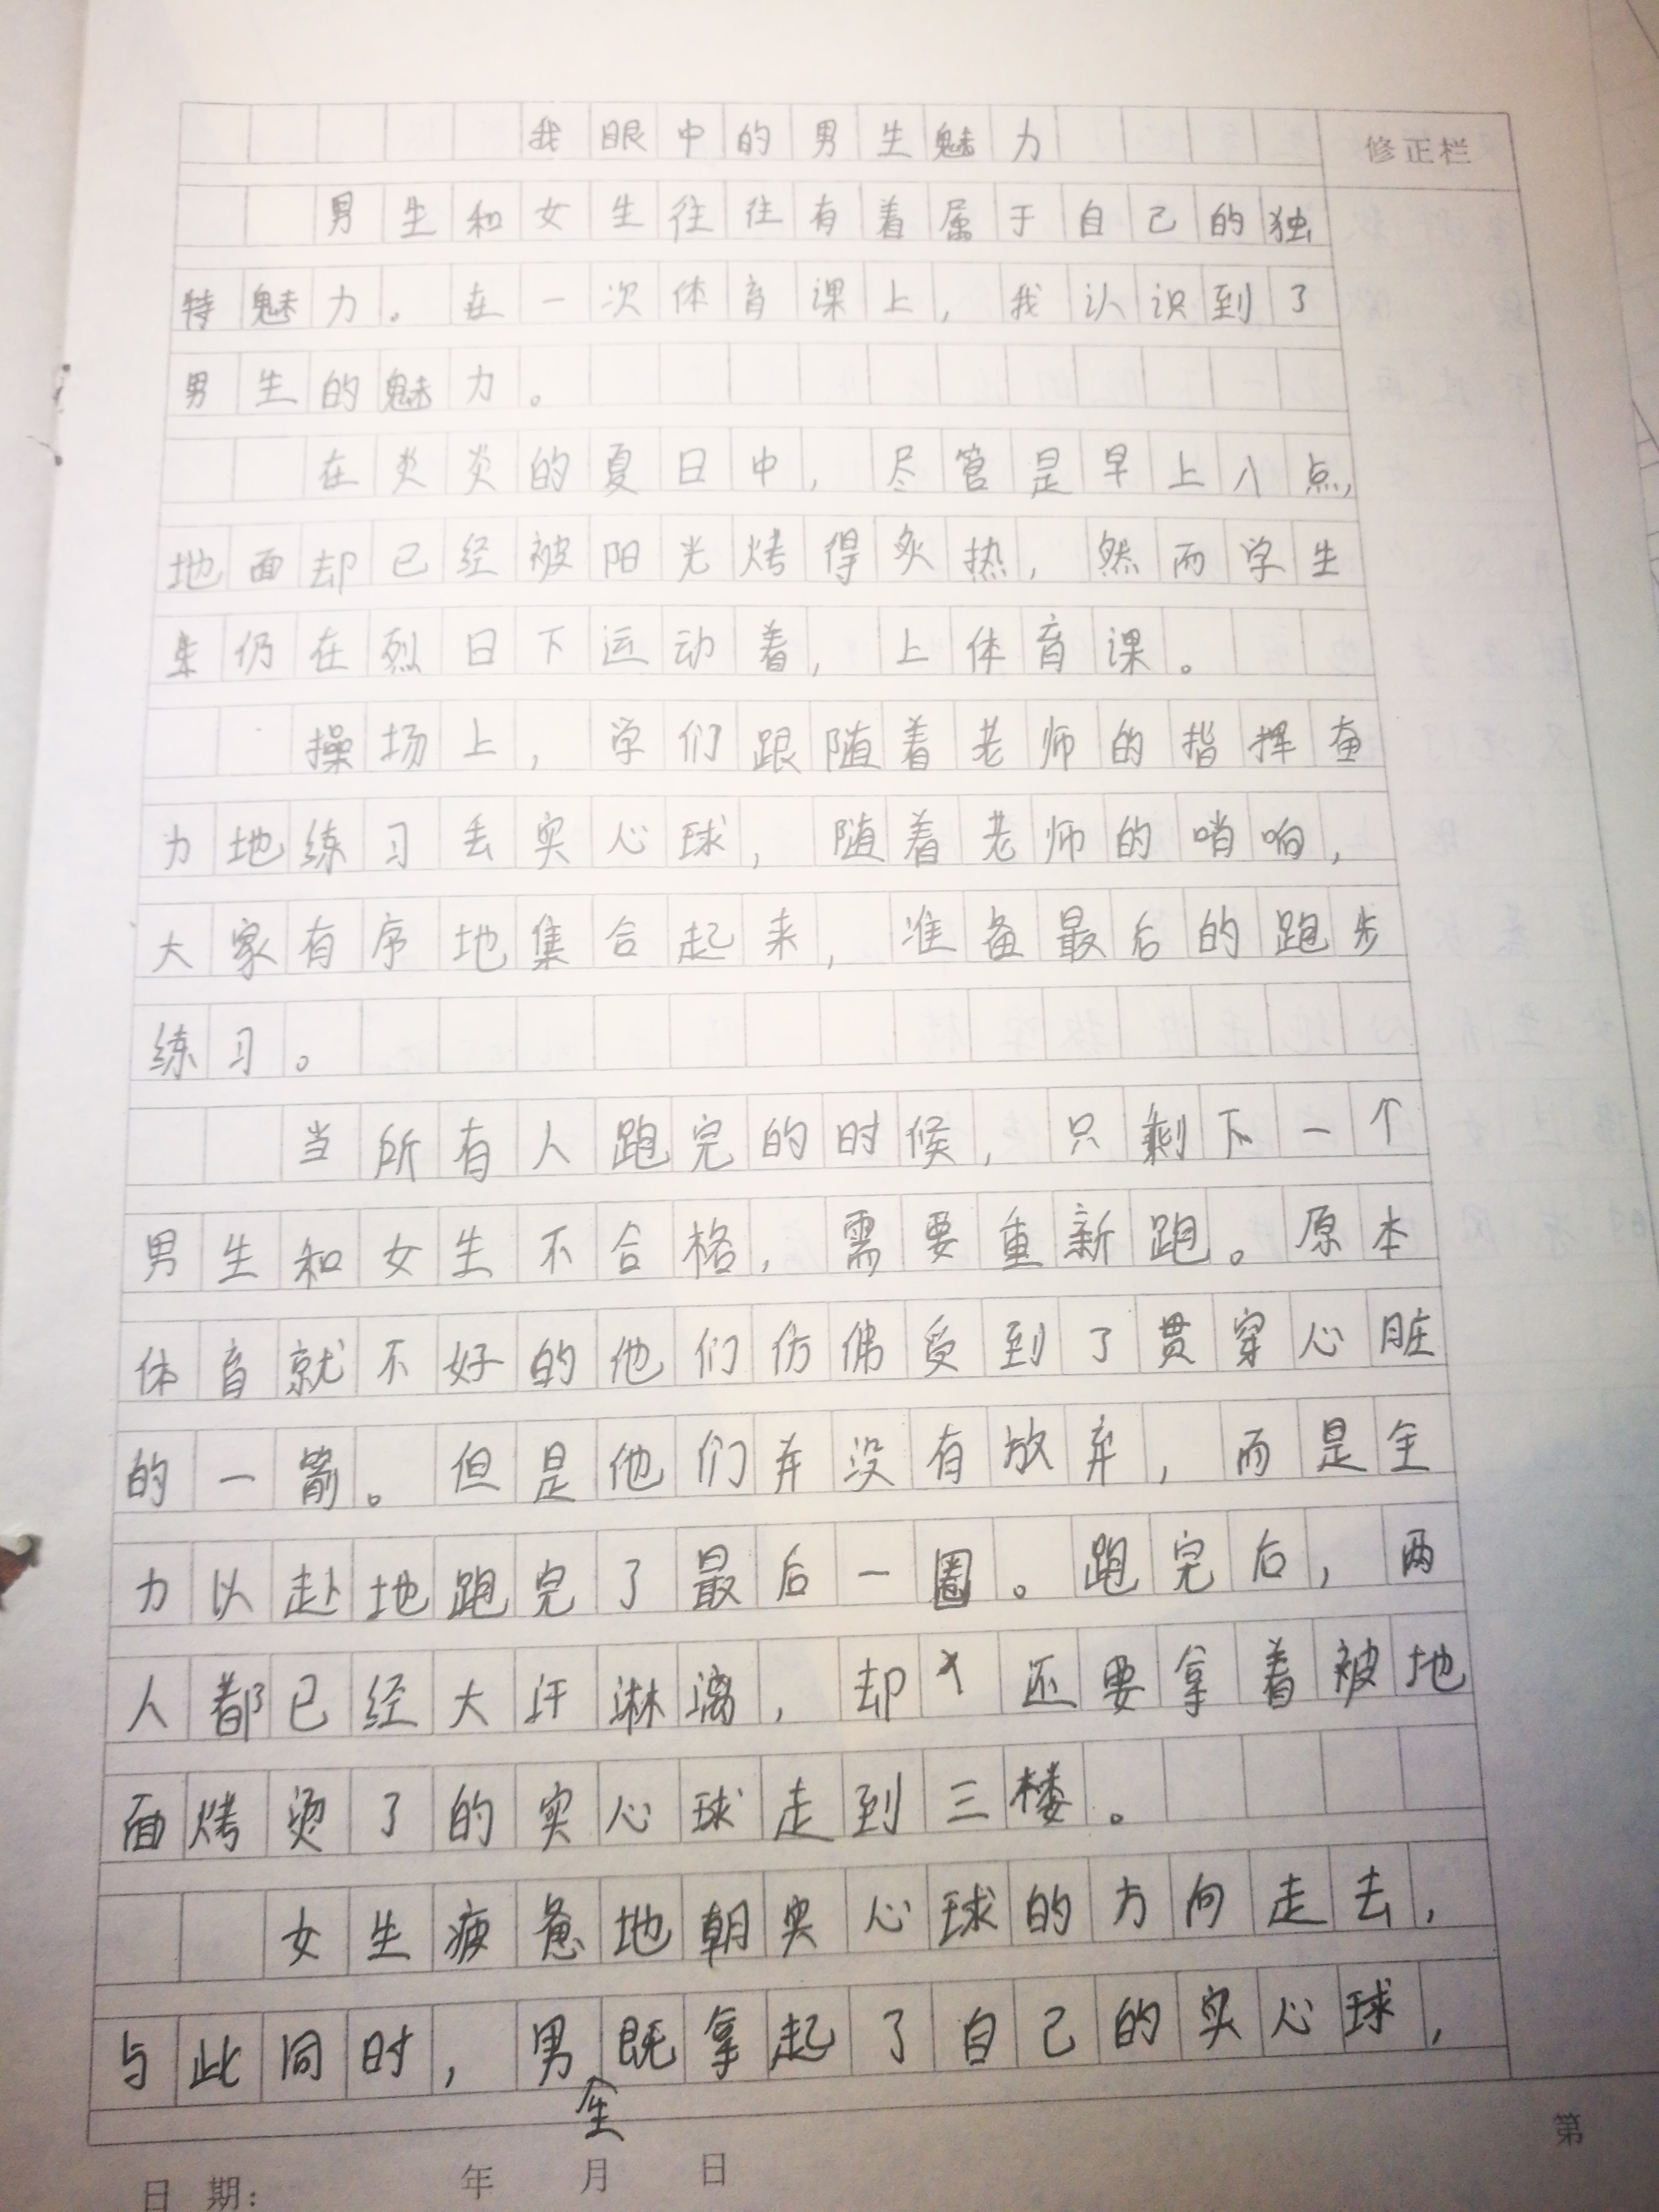 我眼中的男生魅力
修正栏
男生和女生往往有着属于自己的独
特魅力。在一次体育课上,我认识到了
男生的魅力。
在炎炎的夏日中,尽管是早上八点,
地面却已经被阳光烤得炙热,然而学生
仍在烈日下运动着,上体育课。
操场上,学们跟随着老师的指挥奋
力地练习丢实心球,随着老师的哨响,
大家有序地集合起来,准备最后的跑步
练习。
当所有人跑完的时候,只剩下一个
男生和女生不合格,需要重新跑。原本
体育就不好的他们仿佛受到了贯穿心脏
的一箭。但是他们并没有放弃,而是全
力以赴地跑完了最后一圈。跑完后,两
人都已经大汗淋漓,却还要拿着被地
面烤烫了的实心球走到三楼。
女生疲惫地朝实心球的方向走去,
与此同时,男生既拿起了自己的实心球,
日期: 年 月 日
第